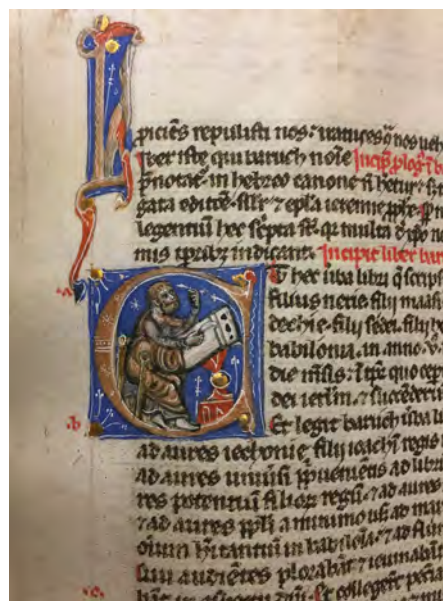 piciēs repulisti nos: iratus es ꝯ nos veh
Liber iste qui baruch nōīe Incip̄ ṗloḡ ī b
p̄notat̄. in hebreo canone n̄ hētur: sꝫ
gata editōe. silr̄ ⁊ epl̄a ieremie ꝓphe. ꝓp
legentiū hec scripta st̄. qr multa d' xpo no
mis tp̄ribꝫ indicant. Incipit liber bar
.a.
ET hec ūba libri q̄ scrips
filius nerie filij maas
dechie. filij sedei. filij h
babilonia. in anno. v.
die mēsis: ī tp̄r quo cep
dei ierl̄m. ⁊ succēderūt
.b.
Et legit baruch ūba li
ad aures iechonie filij ioachī regis
ad aures uniūsi ppl̄i ueniētis ad libr
res potentiū filioꝝ regū. ⁊ ad aures
⁊ ad aures ppl̄i a minimo usꝗ ad max
oīum hītantiū in babilonia. ⁊ ad flum
sui audiētes plorabāt ⁊ ieiunabāt
.c.
bāt in ꝯspectu dn̄i. Et collegert pecu